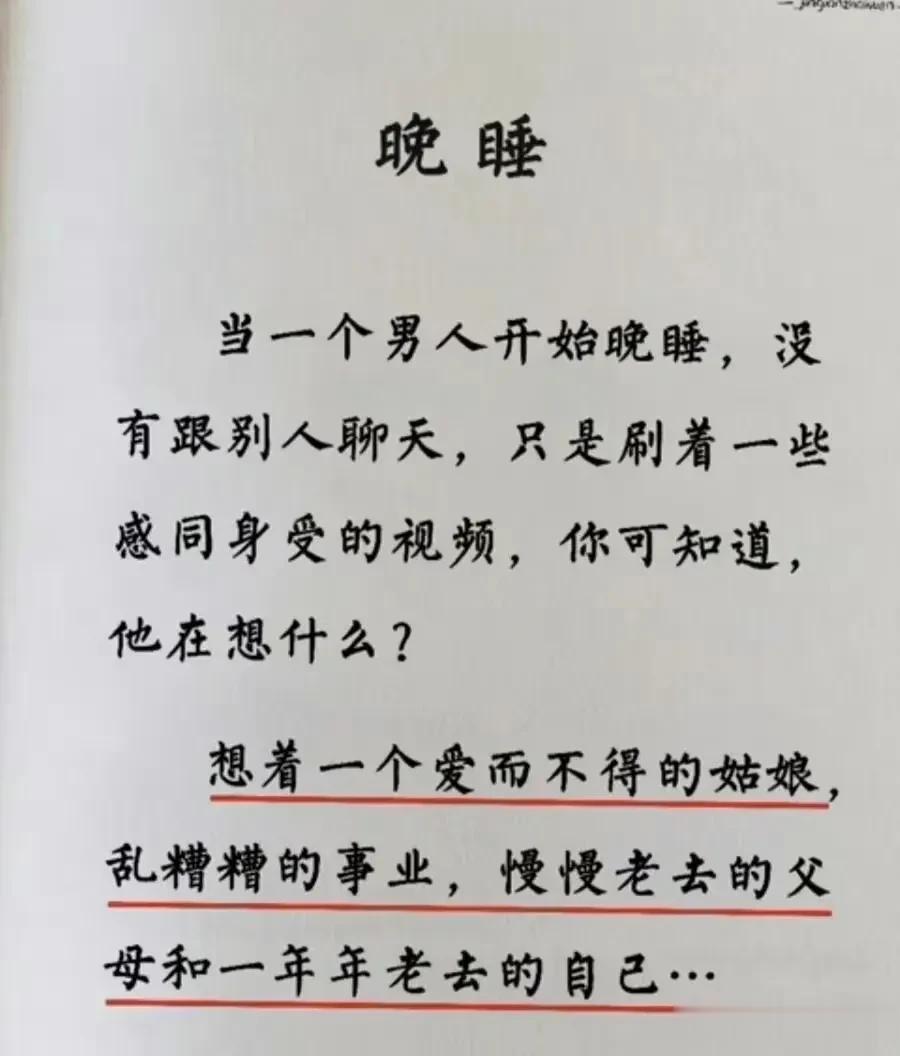 晚睡
当一个男人开始晚睡，没
有跟别人聊天，只是刷着一些
感同身受的视频，你可知道，
他在想什么？
想着一个爱而不得的姑娘，
乱糟糟的事业，慢慢老去的父
母和一年年老去的自己…